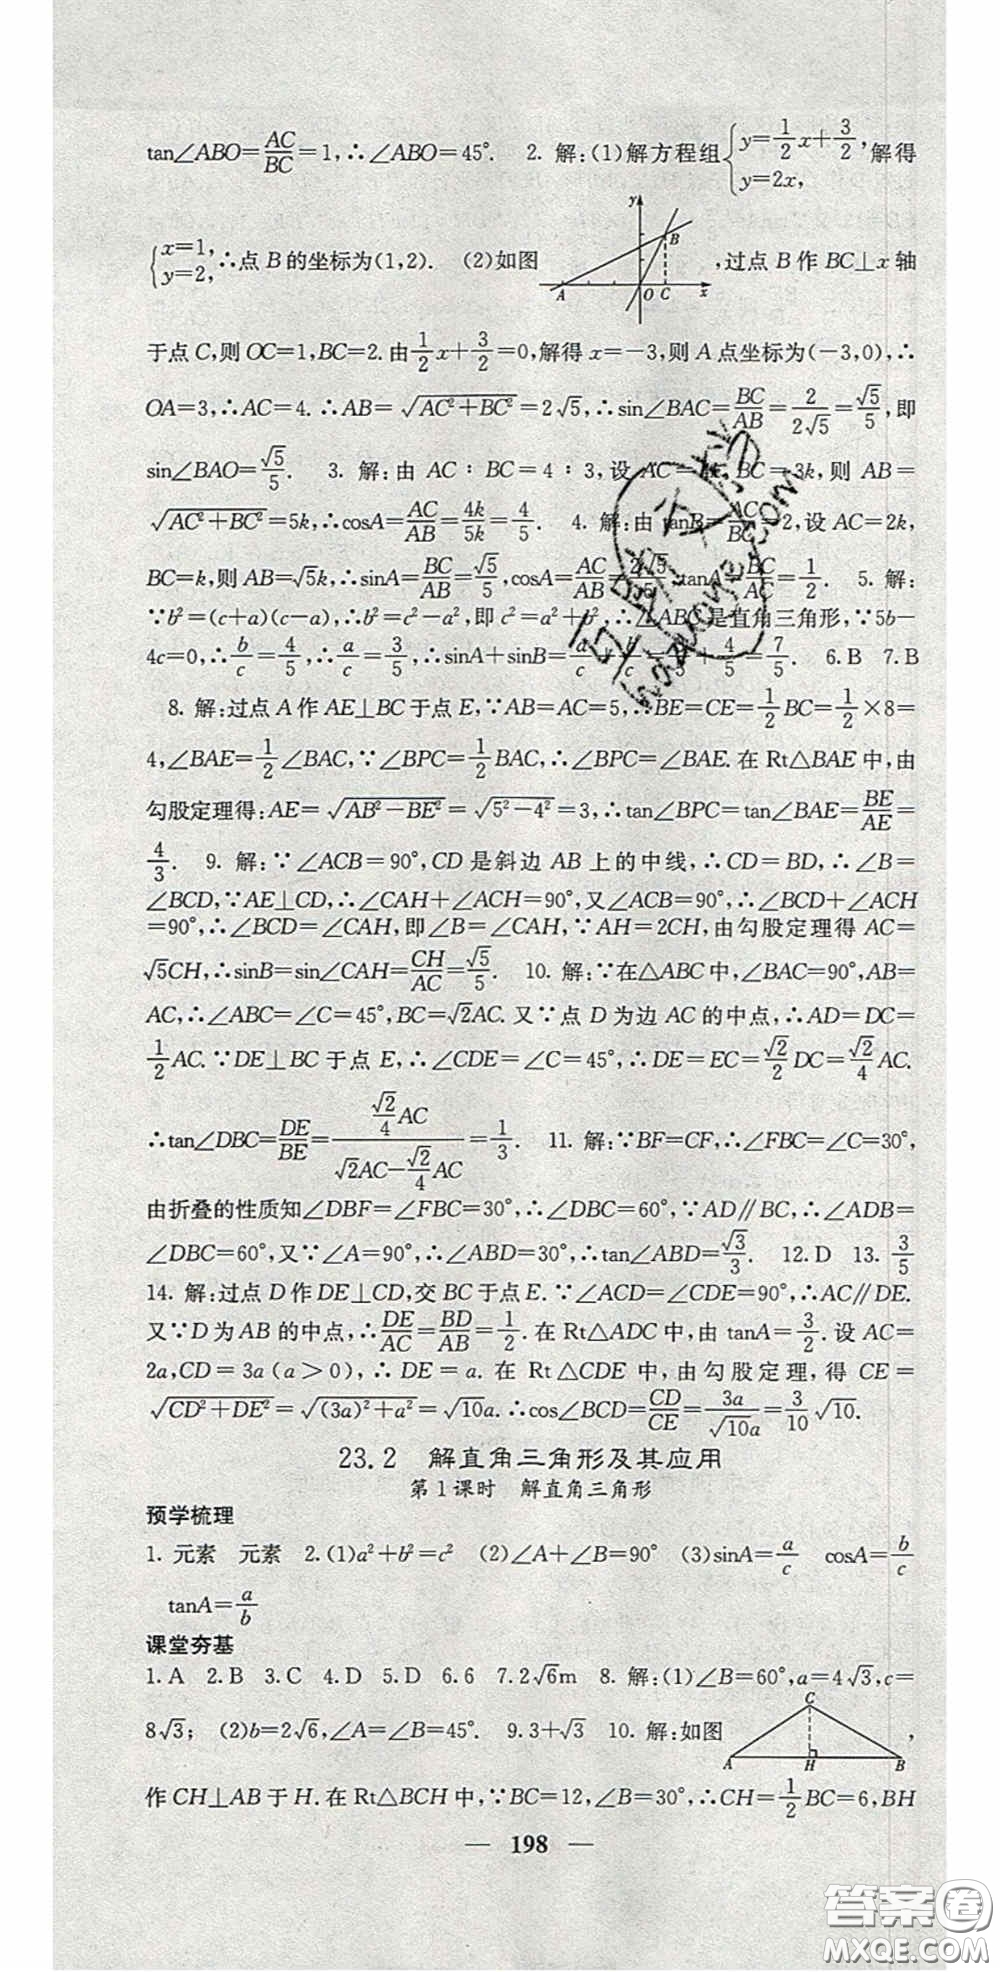 tan∠ABO=AC/BC=1,∴∠ABO=45°. 2. 解:(1)解方程组{y=1/2x+3/2, y=2x, 解得
{x=1, y=2, ∴点 B 的坐标为(1,2). (2)如图 ,过点 B 作 BC⊥x 轴
y
B
A
O
C
x
于点 C,则 OC=1,BC=2. 由1/2x+3/2=0,解得 x=-3,则 A 点坐标为(-3,0),∴
OA=3,∴AC=4. ∴AB=√(AC²+BC²)=2√5,∴sin∠BAC=BC/AB=2/(2√5)=√5/5,即
sin∠BAO=√5/5. 3. 解:由 AC∶BC=4∶3,设 AC=4k,BC=3k,则 AB=
√(AC²+BC²)=5k,∴cosA=AC/AB=4k/5k=4/5. 4. 解:由 tanB=AC/BC=2,设 AC=2k,
BC=k,则 AB=√5k,∴sinA=BC/AB=√5/5,cosA=AC/AB=2√5/5,tanA=BC/AC=1/2. 5. 解:
∵b²=(c+a)(c-a),∴b²=c²-a²,即 c²=a²+b²,∴△ABC 是直角三角形,∵5b-
4c=0,∴b/c=4/5,∴a/c=3/5,∴sinA+sinB=a/c+b/c=3/5+4/5=7/5. 6. B 7. B
8. 解:过点 A 作 AE⊥BC 于点 E,∵AB=AC=5,∴BE=CE=1/2BC=1/2×8=
4,∠BAE=1/2∠BAC,∵∠BPC=1/2BAC,∴∠BPC=∠BAE. 在 Rt△BAE 中,由
勾股定理得:AE=√(AB²-BE²)=√(5²-4²)=3,∴tan∠BPC=tan∠BAE=BE/AE=
4/3. 9. 解:∵∠ACB=90°,CD 是斜边 AB 上的中线,∴CD=BD,∴∠B=
∠BCD,∵AE⊥CD,∴∠CAH+∠ACH=90°,又∠ACB=90°,∴∠BCD+∠ACH
=90°,∴∠BCD=∠CAH,即∠B=∠CAH,∵AH=2CH,由勾股定理得 AC=
√5CH,∴sinB=sin∠CAH=CH/AC=√5/5. 10. 解:∵在△ABC 中,∠BAC=90°,AB=
AC,∴∠ABC=∠C=45°,BC=√2AC. 又∵点 D 为边 AC 的中点,∴AD=DC=
1/2AC. ∵DE⊥BC 于点 E,∴∠CDE=∠C=45°,∴DE=EC=√2/2DC=√2/4AC.
∴tan∠DBC=DE/BE=(√2/4AC)/(√2AC-√2/4AC)=1/3. 11. 解:∵BF=CF,∴∠FBC=∠C=30°,
由折叠的性质知∠DBF=∠FBC=30°,∴∠DBC=60°,∵AD∥BC,∴∠ADB=
∠DBC=60°,又∵∠A=90°,∴∠ABD=30°,∴tan∠ABD=√3/3. 12. D 13. 3/5
14. 解:过点 D 作 DE⊥CD,交 BC 于点 E. ∵∠ACD=∠CDE=90°,∴AC∥DE.
又∵D 为 AB 的中点,∴DE/AC=BD/AB=1/2. 在 Rt△ADC 中,由 tanA=3/2. 设 AC=
2a,CD=3a(a>0),∴DE=a. 在 Rt△CDE 中,由勾股定理,得 CE=
√(CD²+DE²)=√((3a)²+a²)=√10a. ∴cos∠BCD=CD/CE=3a/(√10a)=3/10√10.
23.2 解直角三角形及其应用
第1课时 解直角三角形
预学梳理
1. 元素 元素 2.(1)a²+b²=c² (2)∠A+∠B=90° (3)sinA=a/c cosA=b/c
tanA=a/b
课堂夯基
1. A 2. B 3. C 4. D 5. D 6. 6 7. 2√6m 8. 解:(1)∠B=60°,a=4√3,c=
8√3; (2)b=2√6,∠A=∠B=45°. 9. 3+√3 10. 解:如图 ,
C
A
H
B
作 CH⊥AB 于 H. 在 Rt△BCH 中,∵BC=12,∠B=30°,∴CH=1/2BC=6,BH
— 198 —
答案圈
MXQE.COM